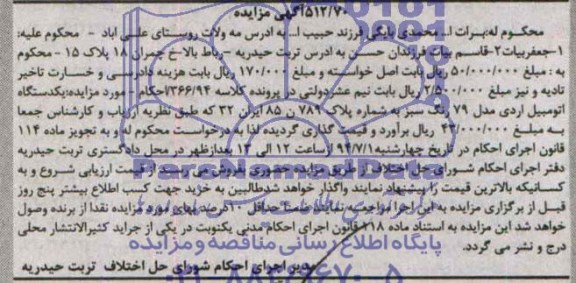 ۵۱۲/۷۰آگهی مزایده
محکوم له:برات ا... محمدی بایگی فرزند حبیب ا... به ادرس مه ولات روستای علی اباد - محکوم علیه:
۱-جعفربیات۲-قاسم بیات فرزندان حسن به ادرس تربت حیدریه -رباط بالا-خ چمران ۱۸ پلاک ۱۵ - محکوم
به : مبلغ ۵۰/۰۰۰/۰۰۰ ریال بابت اصل خواسته و مبلغ ۱۷۰/۰۰۰ ریال بابت هزینه دادرسی و خسارت تاخیر
تادیه و نیز مبلغ ۲/۵۰۰/۰۰۰ ریال بابت نیم عشردولتی در پرونده کلاسه ۷۳۶۶/۹۴احکام - مورد مزایده:یکدستگاه
اتومبیل اردی مدل ۷۹ رنگ سبز به شماره پلاک ۷۸۹ ن ۸۵ ایران ۳۲ که طبق نظریه ارزیاب و کارشناس جمعا
به مبلغ ۴۳/۰۰۰/۰۰۰ ریال براورد و قیمت گذاری گردیده لذا به درخواست محکوم له و به تجویز ماده ۱۱۴
قانون اجرای احکام در تاریخ چهارشنبه ۹۴/۷/۱ ازساعت ۱۲ الی ۱۳ بعدازظهر در محل دادگستری تربت حیدریه
دفتر اجرای احکام شورای حل اختلاف از طریق مزایده حضوری بفروش می رسد از قیمت ارزیابی شروع و به
کسانیکه بالاترین قیمت را پیشنهاد نمایند واگذار خواهد شدطالبین به خرید جهت کسب اطلاع بیشتر پنج روز
قبل از برگزاری مزایده به این اجرا مراجعه نمایند ضمنا حداقل ۱۰درصد بهای مورد مزایده نقدا از برنده وصول
خواهد شد این مزایده به استناد ماده ۱۱۸ قانون اجرای احکام مدنی یکنوبت در یکی از جراید کثیرالانتشار محلی
درج و نشر می گردد.
پایگاه اطلاع رسانی مناقصه ومزایده
مدیر اجرای احکام شورای حل اختلاف تربت حیدریه